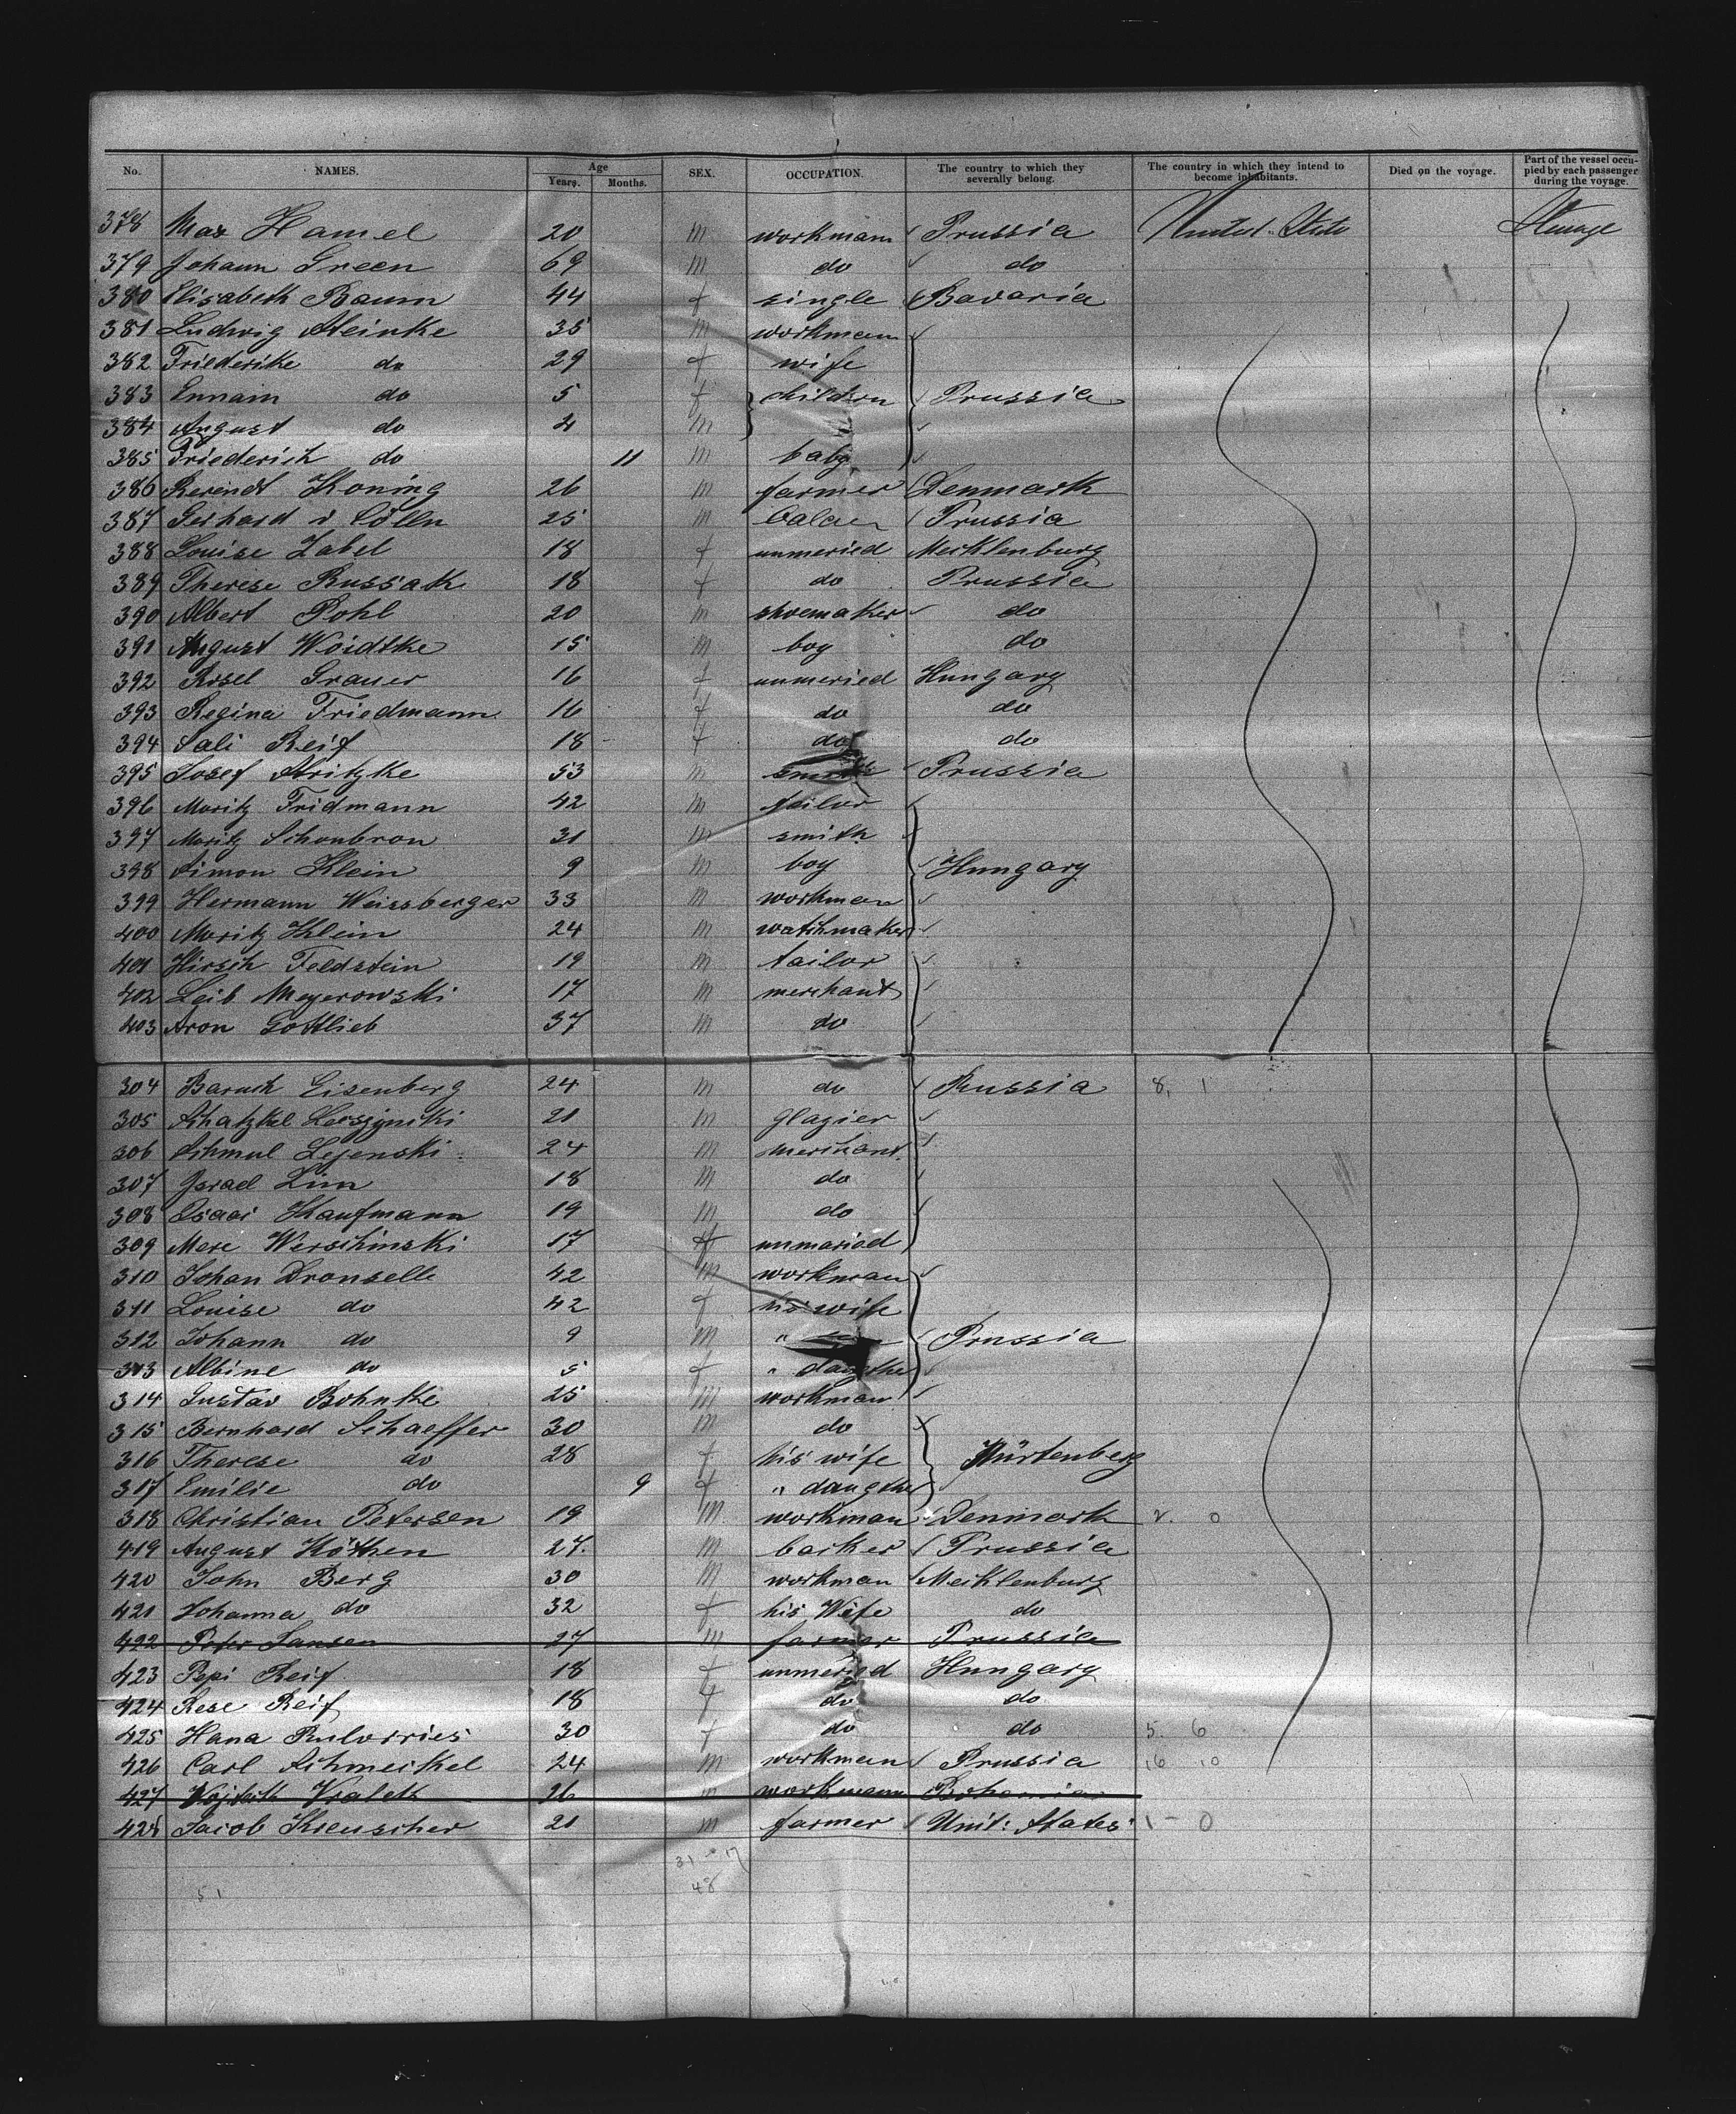 No. NAMES. Age Years. Months. SEX. OCCUPATION. The country to which they severally belong. The country in which they intend to become inhabitants. Died on the voyage. Part of the vessel occupied by each passenger during the voyage.
378 Max Hamel 20 m workmann Prussia United States Steerage
379 Johann Green 69 m do do
380 Elisabeth Baum 44 f single Bavaria
381 Ludwig Steinke 35 m workmann
382 Friederike do 29 f wife
383 Ennain do 5 f children Prussia
384 August do 4 m
385 Friederich do 11 m baby
386 Berendt Koning 26 m farmer Denmark
387 Gerhard v Cölln 25 m Prussia
388 Louise Zabel 18 f unmeried Mecklenburg
389 Therese Bussak 18 f do Prussia
390 Albert Pohl 20 m shoemaker do
391 August Woidtke 15 m boy do
392 Rosel Grauer 16 f unmeried Hungary
393 Regina Friedmann 16 f do do
394 Sali Reif 18 f do do
395 Josef Stritzke 53 m smith Prussia
396 Moritz Fridmann 42 m tailor
397 Moritz Schonbron 31 m smith
398 Simon Klein 9 m boy Hungary
399 Hermann Weissberger 33 m workman
400 Moritz Klein 24 m watchmaker
401 Hirsch Feldstein 19 m tailor
402 Leib Meyerowski 17 m merchant
403 Aron Gottlieb 37 m do
304 Baruch Eisenberg 24 m do Russia 8, 1
305 21 m glazier
306 Schmul Lejenski 24 m merchant
307 Israel Lim 18 m do
308 Isaac Kaufmann 19 m do
309 Mere Werschinski 17 f unmaried
310 Johan Dronselle 42 m workman
311 Louise do 42 f his wife
312 Johann do 9 m " Prussia
313 Albine do 5 f " daugther
314 Gustav Bohnke 25 m workman
315 Bernhard Schaeffer 30 m do
316 Therese do 28 f his wife Würtenberg
317 Emilie do 9 f " daugther
318 Christian Petersen 19 m workman Denmark 2. 0
419 August Köthen 27. m backer Prussia
420 John Berg 30 m workman Mecklenburg
421 Johanna do 32 f his Wife do
422 Peter Jansen 27 m farmer Prussia
423 Pepi Reif 18 f unmeried Hungary
424 Rese Reif 18 f do do
425 Hana Rulorries 30 f do do 5. 6
426 Carl Schmeikel 24 m workman Prussia 16 10
427 Wojtech Kralek 26 m workmann Bohemia
428 Jacob Kreuscher 21 m farmer Unit: States 1 - 0
31 17
51 48